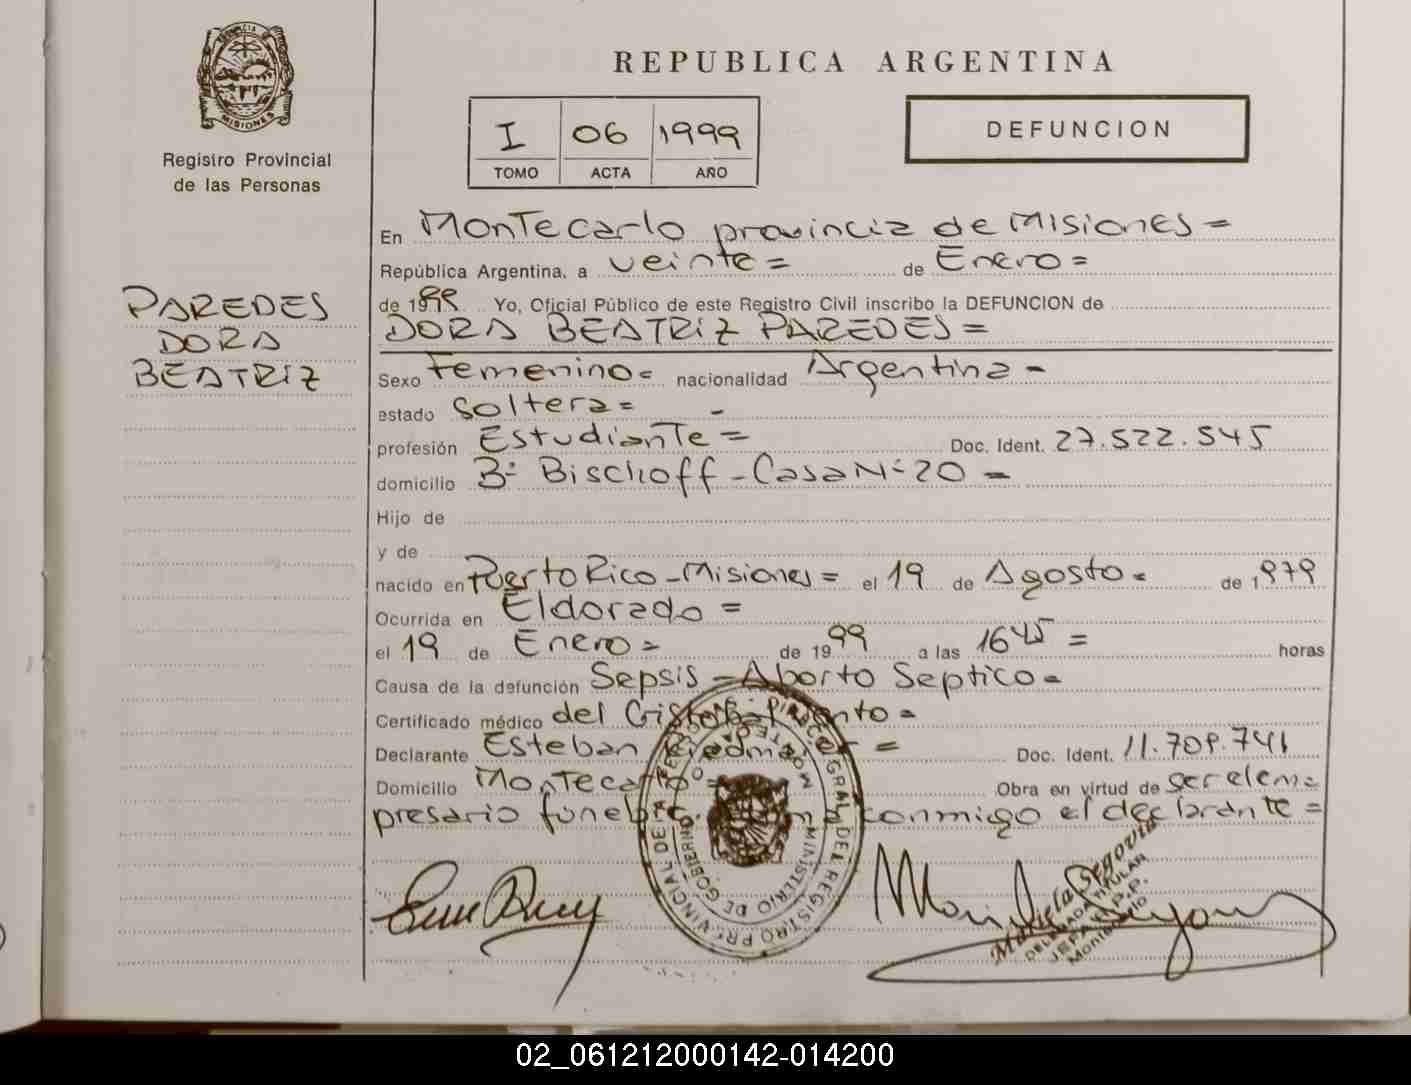 PROVINCIA DE
MISIONES
Registro Provincial
de las Personas
REPUBLICA ARGENTINA
I 06 1999
TOMO ACTA AÑO
DEFUNCION
PAREDES
DORA
BEATRIZ
En Montecarlo provincia de Misiones =
República Argentina, a veinte = de Enero =
de 1999 Yo, Oficial Público de este Registro Civil inscribo la DEFUNCION de
DORA BEATRIZ PAREDES =
Sexo Femenino = nacionalidad Argentina -
estado Soltera = -
profesión Estudiante = Doc. Ident. 27.522.545
domicilio B° Bischoff - Casa N° 20 =
Hijo de
y de
nacido en Puerto Rico - Misiones = el 19 de Agosto = de 1979
Ocurrida en Eldorado =
el 19 de Enero = de 1999 a las 1645 = horas
Causa de la defunción Sepsis - Aborto Septico =
Certificado médico del
Declarante Esteban = Doc. Ident. 11.709.741
Domicilio Montecarlo = Obra en virtud de ser el em=
presario conmigo el declarante =
DIREC. GRAL DEL REGISTRO PROVINCIAL DE
MINISTERIO DE GOBIERNO
Mariela Segovia
DELEGADA TITULAR
02_061212000142-014200